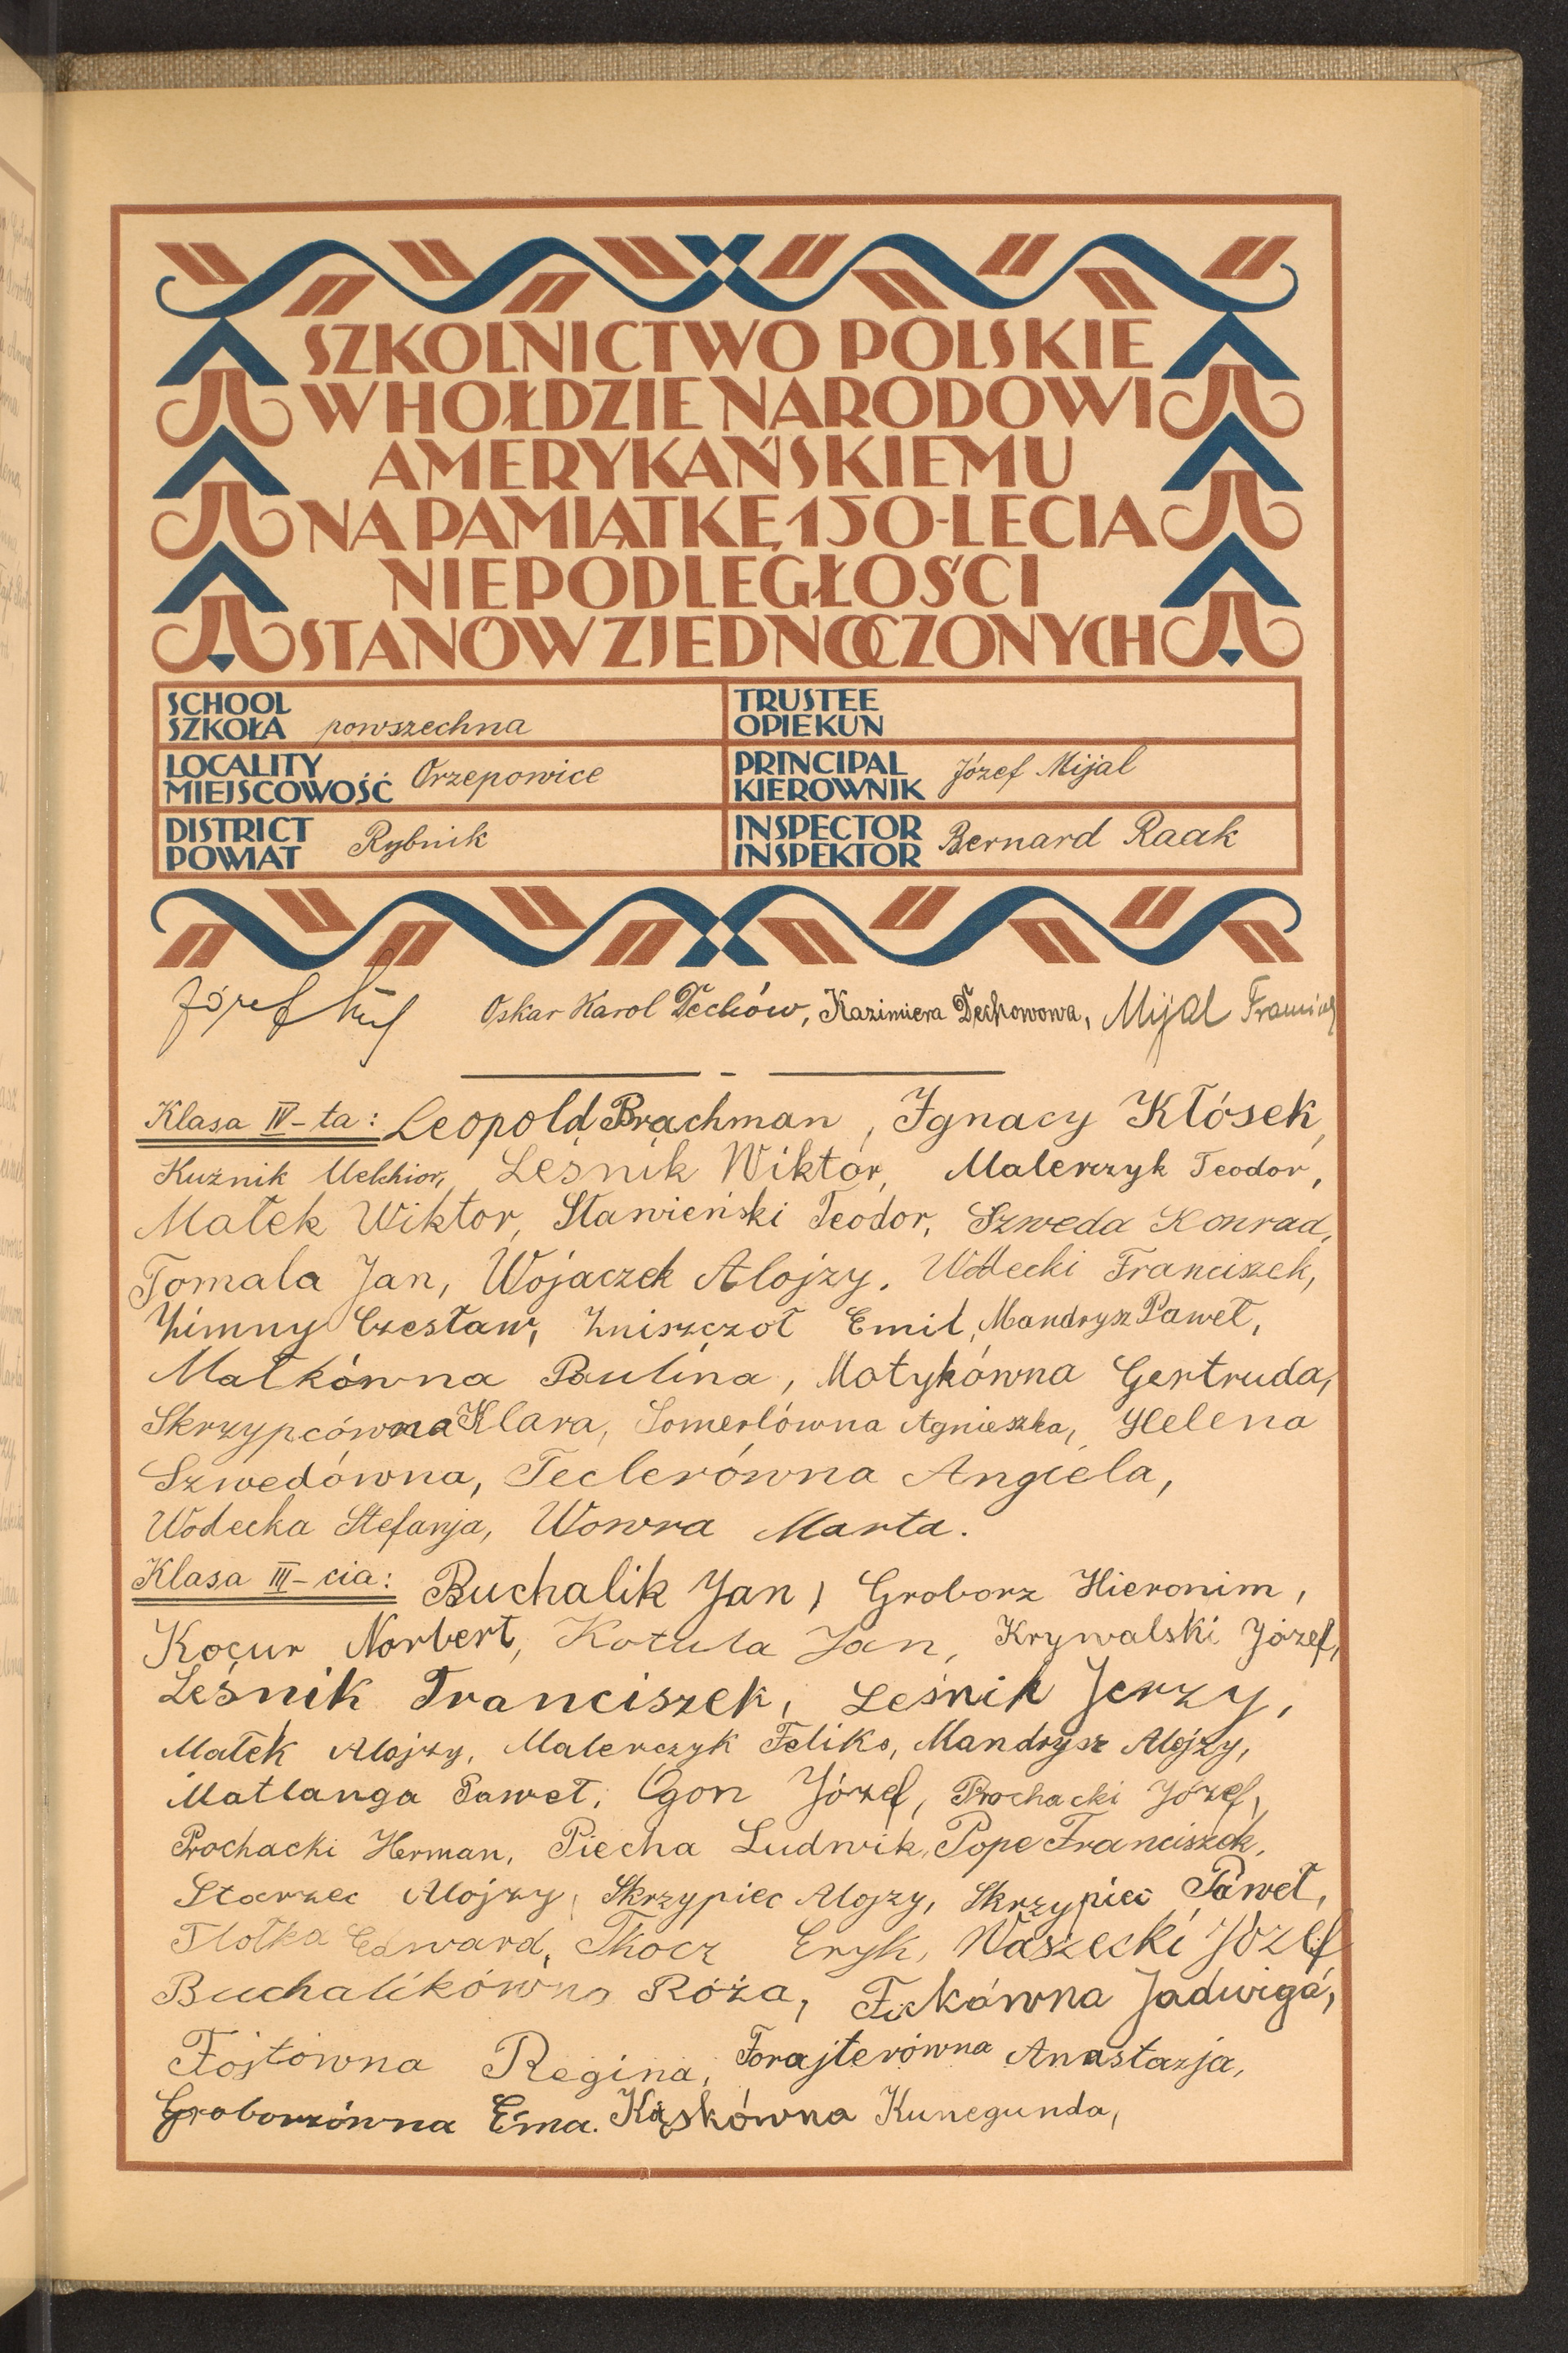 SZKOLNICTWO POLSKIE
W HOŁDZIE NARODOWI
AMERYKAŃSKIEMU
NA PAMIĄTKĘ 150-LECIA
NIEPODLEGŁOŚCI
STANÓW ZJEDNOCZONYCH
SCHOOL
SZKOŁA powszechna
TRUSTEE
OPIEKUN
LOCALITY
MIEJSCOWOŚĆ Orzepowice
PRINCIPAL
KIEROWNIK Józef Mijal
DISTRICT
POWIAT Rybnik
INSPECTOR
INSPEKTOR Bernard Raak
Józef Oskar Karol Dechów, Kazimiera Dechowowa, Mijal
Klasa IV-ta: Leopold Brachman, Ignacy Kłósek,
Kuźnik Melchior, Leśnik Wiktor, Malerczyk Teodor,
Małek Wiktor, Sławieński Teodor, Szweda Konrad,
Tomala Jan, Wojaczek Alojzy. Wodecki Franciszek,
Zimny Czesław, Zniszczoł Emil, Mandrysz Paweł,
Małkówna Paulina, Motykówna Gertruda,
Skrzypcówna Klara, Somerlówna Agnieszka, Helena
Szwedówna, Teclerówna Angiela,
Wodecka Stefanja, Wowra Marta.
Klasa III-cia: Buchalik Jan, Groborz Hieronim,
Kocur Norbert, Kotula Jan, Krywalski Józef,
Leśnik Franciszek, Leśnik Jerzy,
Małek Alojzy, Malerczyk Feliks, Mandrysz Alojzy,
Matlanga Paweł, Ogon Józef, Prochacki Józef,
Prochacki Herman, Piecha Ludwik, Pope Franciszek,
Starzec Alojzy, Skrzypiec Alojzy, Skrzypiec Paweł,
Tlołka Edward, Tkocz Eryk, Waszecki Józef
Buchalikówna Róża, Jadwiga,
Fojtówna Regina, Forajterówna Anastazja,
Groborzówna Ema. Kąskówna Kunegunda,